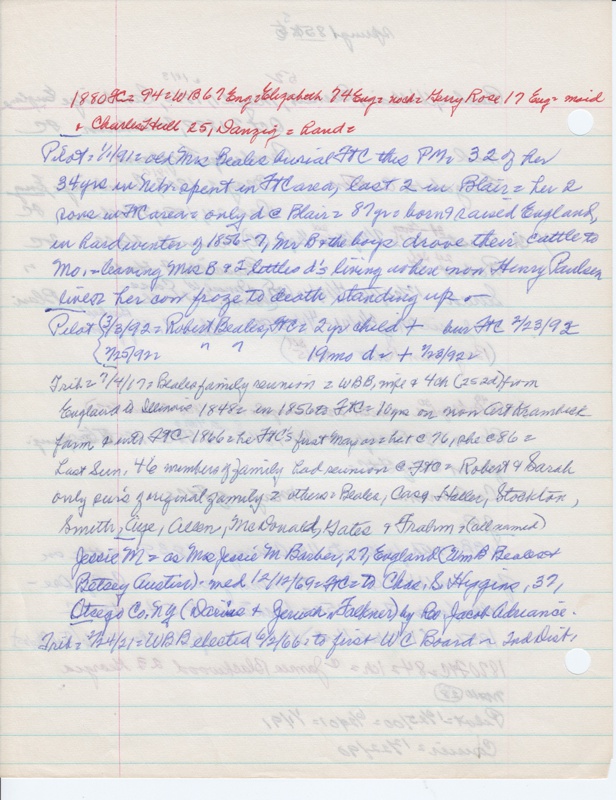 1880 FtC = 94 = WB 67 Eng = Elizabeth 74 Eng = noch = Gerry Rose 17 Eng = maid
+ Charles Hull 25, Danzig = hand =
Pilot = 1/1/91 = old Mrs Beales burial FtC this PM = 32 of her
34 yrs in Nebr. spent in FtC area, last 2 in Blair = her 2
sons in FtC area = only d @ Blair = 87 yr = born & raised England,
in hard winter of 1856-7, Mr B & the boys drove their cattle to
Mo. = leaving Mrs B & 2 little d's living where now Henry Paulsen
lives = her cow froze to death, standing up.
Pilot 3/3/92 = Robert Beales, FtC = 2 yr child + bur FtC 2/23/92
2/25/92 " " 19 mo d = + 2/23/92
Trib = 7/4/17 = Beales family reunion = WBB, wife & 4 ch (2s 2d) from
England to Illinois 1848 = in 1856 to FtC = 10 yrs on now Art Krambeck
farm & into FtC 1866 = he FtC's first Mayor = he + @ 76, she @ 86 =
Last Sun. 46 members of family had reunion @ FtC = Robert & Sarah
only sur's of original family = others = Beales, Cass, Haller, Stockton,
Smith, Allen, McDonald, Gates & Frahm = (all named)
Jessie M = as Mrs Jessie M Barber, 27, England (Wm B Beales &
Betsey Austin) - med 12/12/69 = FtC = to Chas. S Higgins, 37,
Otsego Co. NY (Darius & Jerush Falkner) by Rev Jacob Adriance.
Trib = 2/24/21 = WBB elected 6/2/66 = to first W C Board = 2nd Dist.